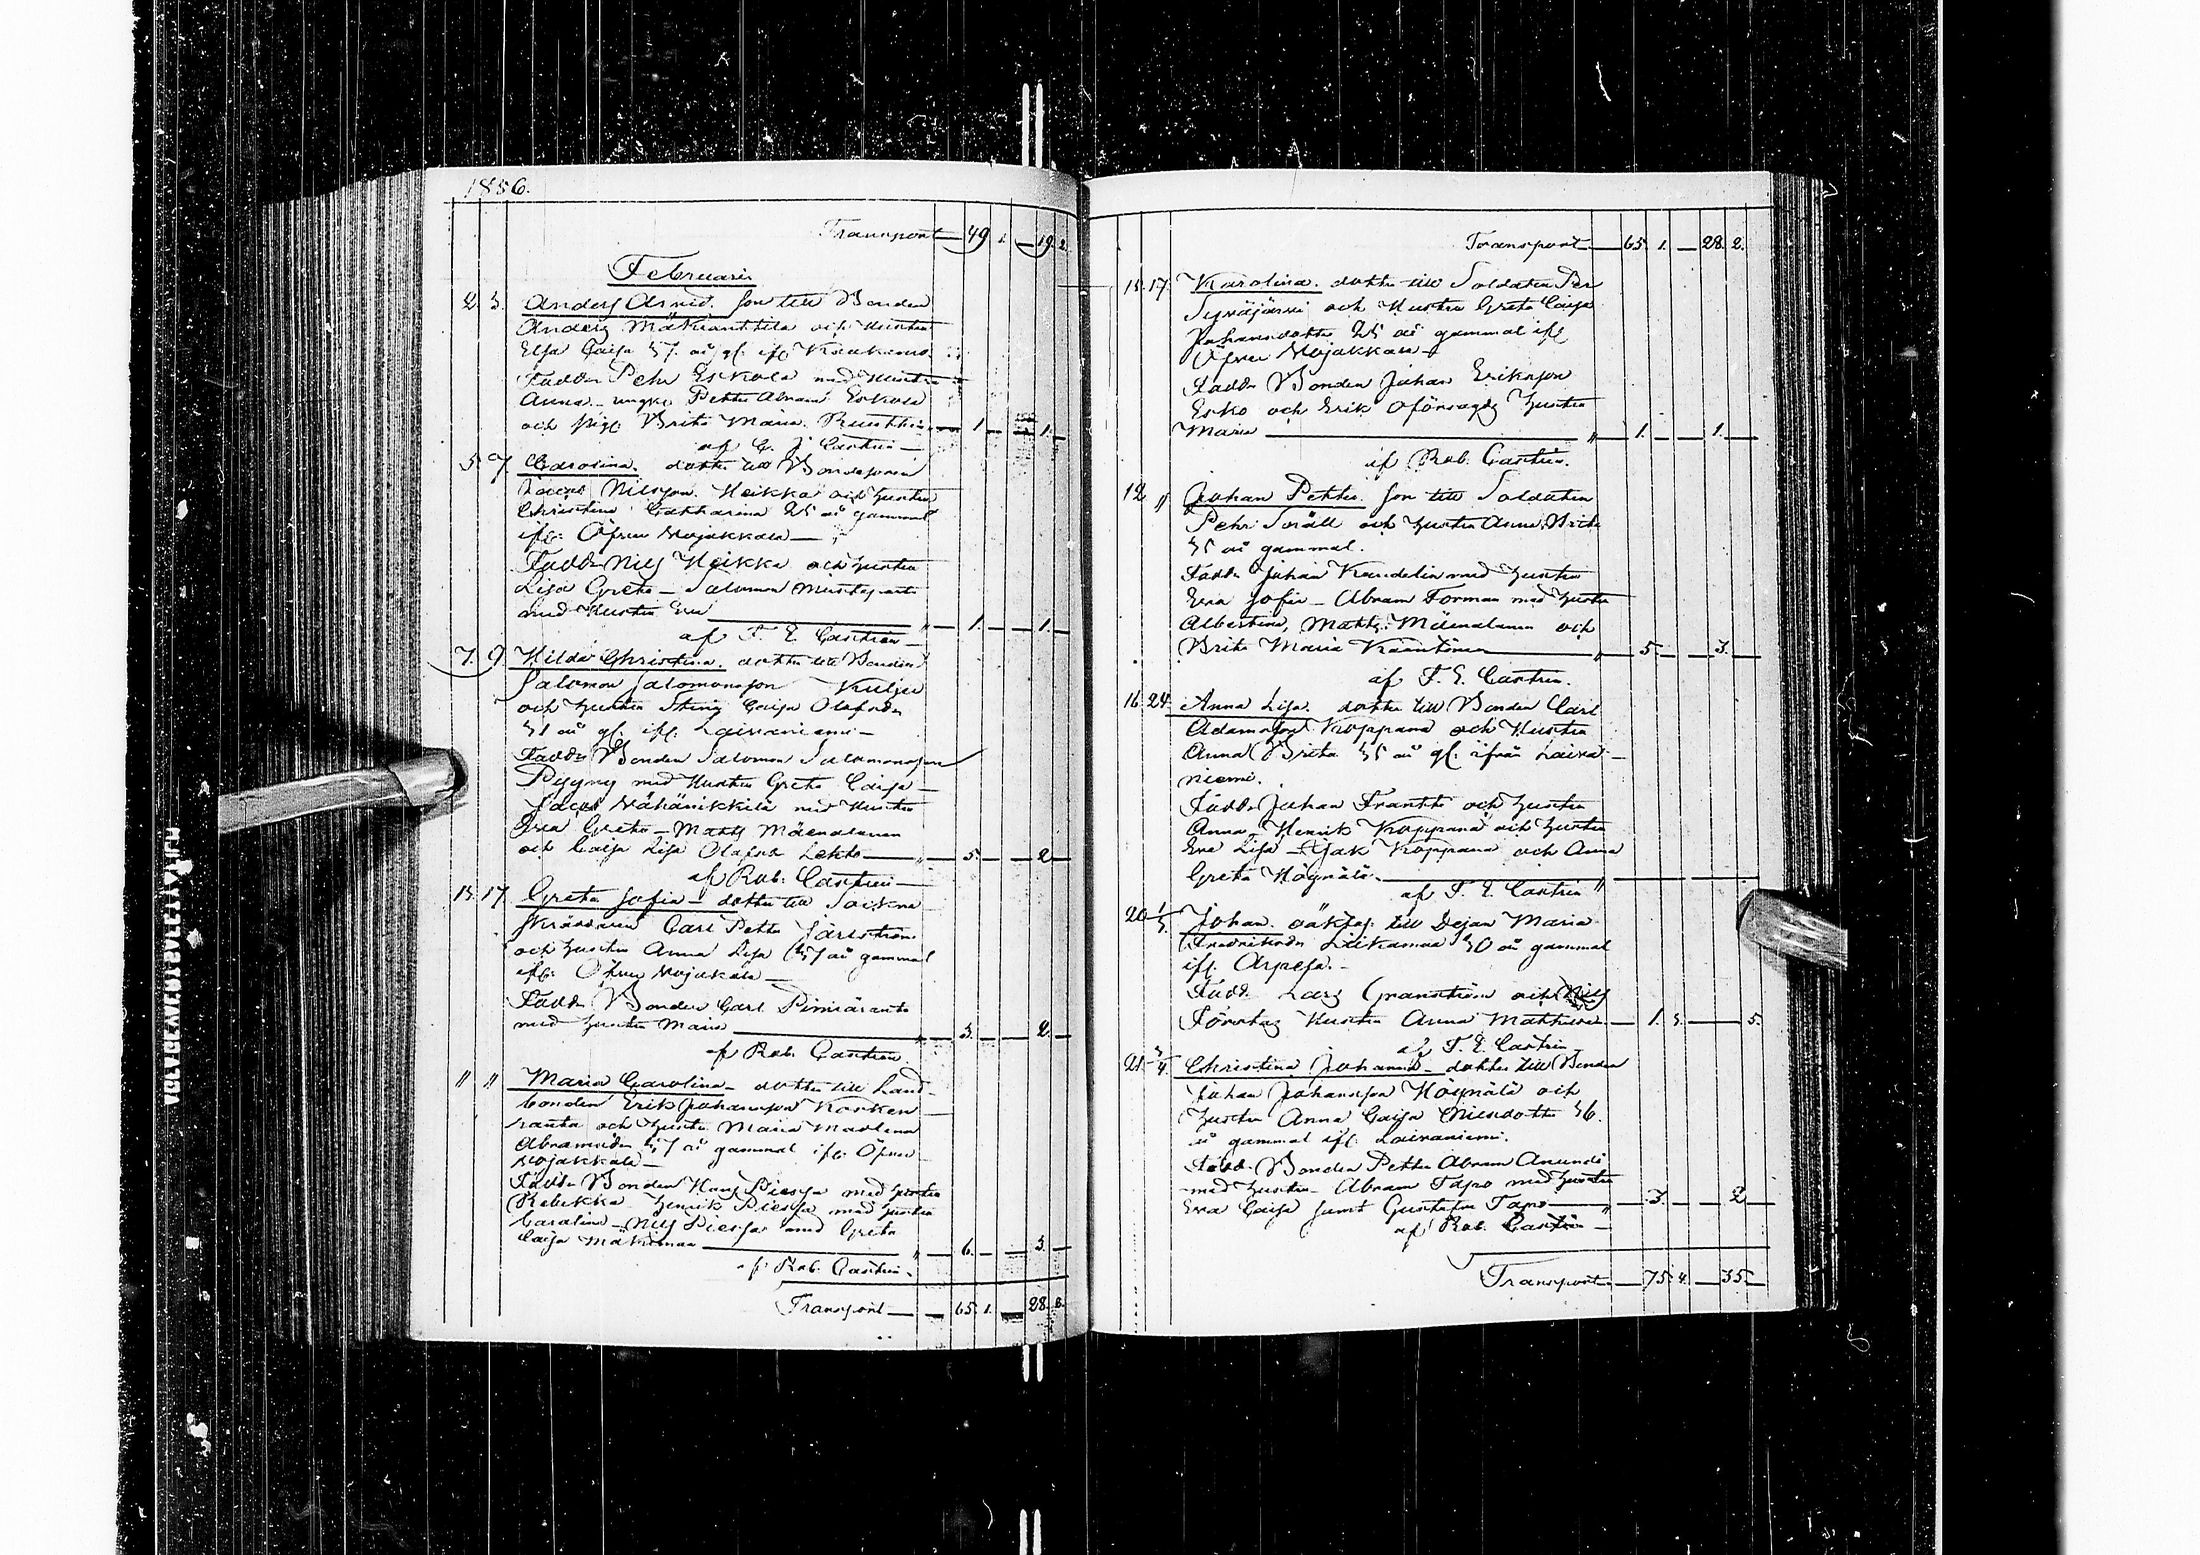 1856.
Transport 49 1. 19. 2.
Februari
2. 3. Anders Arvid. son till Bonden
Anders Mäkianttila och Hustru
Elsa Caisa 37. år gl. ifr.
Fadd. Pehr Eskola med Hustru
Anna Petter Abram Eskola
och pig. Brita Maria 1 1.
af C. J. Castrén
5. 7. Carolina. dotter till Bondesonen
Jacob Nilsson Heikka och Hustru
Christina Catharina 25 år gammal
ifr. Öfver Vojakkala
Fadd. Nils Heikka och Hustru
Lisa Greta Salomon
med Hustru Eva 1. 1.
af F. E. Castrén
7. 9. Hilda Christina. dotter till Bonden
Salomon Salomonsson Kuljer
och Hustru Stina Caisa Olofsdr
31 år gl. ifr. Laivaniemi
Fadd. Bonden Salomon Salomonsson
Pyyny med Hustru Greta Caisa
Jacob Vähänikkilä med Hustru
Eva Greta Matts Mäenalanen
och Caisa Lisa Olofsdr Lehto 5. 2
af Rob. Castrén
15. 17. Greta Sofia dotter till Sockne
skräddaren Carl Petter Järnström
och Hustru Anna Lisa 37 år gammal
ifr. Öfver Vojakala
Fadd. Bonden Carl Pimiäranta
med Hustru Maria 3. 2.
af Rob. Castrén.
" " Maria Carolina dotter till Land
bonden Erik Johansson Kosken
ranta och Hustru Maria Madlena
Abramsdr 37 år gammal ifr. Öfver
Vojakkala
Fadd. Bonden Hans Pieska med Hustru
Rebekka Henrik Pieska med Hustru
Carolina Nils Pieska med Greta
Caisa Mäkimaa 6. 3.
af Rob. Castrén.
Transport 65. 1. 28. 2.
Transport 65. 1. 28. 2.
15. 17. Karolina. dotter till Soldaten Per
Syväjärvi och Hustru Greta Caisa
Johansdotter 25 år gammal ifr.
Öfver Vojakkala
Fadd. Bonden Johan Eriksson
Esko och Erik Oförsagds Hustru
Maria " 1. 1.
af Rob. Castrén.
12 " Johan Petter. son till Soldaten
Pehr och Hustru Anna Brita
35 år gammal.
Fadd. Johan Kandelin med Hustru
Eva Sofia Abram Forman med Hustru
Albertina, Matts Mäenalanen och
Brita Maria " 5. 3.
af F. E. Castrén.
16. 24. Anna Lisa. dotter till Bonden Carl
Adamsson Koppana och Hustru
Anna Brita 35 år gl. ifrån Laiva
niemi.
Fadd. Johan Frantti och Hustru
Anna Henrik Koppana och Hustru
Eva Lisa Isak Koppana och Anna
Greta Höynälä "
af F. E. Castrén
20 1/3. Johan. oäkta s. till Dejan Maria
Fredriksdr Liikamaa 30 år gammal
ifr. Arpela.
Fadd. Lars Granström och Nils
Hustru Anna Mathilda 1. 3. 5.
af F. E. Castrén
21 Christina Johanna dotter till Bonden
Johan Johansson Höynälä och
Hustru Anna Caisa Nilsdotter 36.
år gammal ifr. Laivaniemi.
Fadd. Bonden Petter Abram Anundi
med Hustru Abram Tapio med Hustru
Eva Caisa samt Gustafva Tapio " 3. 2
af Rob. Castrén
Transport 75. 4. 35.